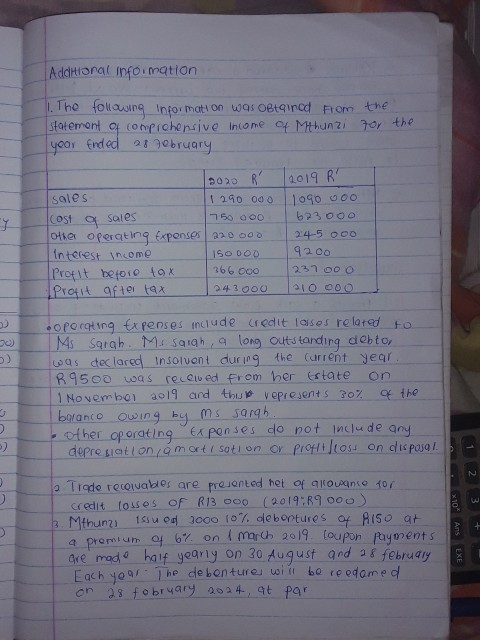 Additional information
1. The following information was obtained from the
statement of comprehensive income of Mthunzi for the
year ended 28 February
2020 R' 2019 R'
Sales 1 290 000 1 090 000
Cost of sales 750 000 623 000
Other operating Expenses 220 000 245 000
Interest income 150 000 9200
Profit before tax 266 000 237 000
Profit after tax 243 000 210 000
• Operating Expenses include credit losses related to
Ms Sarah. Ms Sarah, a long outstanding debtor
was declared insolvent during the current year.
R9500 was received from her Estate on
1 November 2019 and thus represents 30% of the
balance owing by ms sarah
• other operating Expenses do not include any
depresiation, amortisation or profit/loss on disposal.
2. Trade receivables are presented net of allowance for
credit losses OF R13 000 (2019: R9 000)
3. Mthunzi issued 3000 10% debentures of R150 at
a premium of 6% on 1 march 2019. Coupon payments
are made half yearly on 30 August and 28 february
Each year. The debentures will be reedamed
on 28 february 2024, at par
1
2
3
+
x10ˣ
Ans
EXE